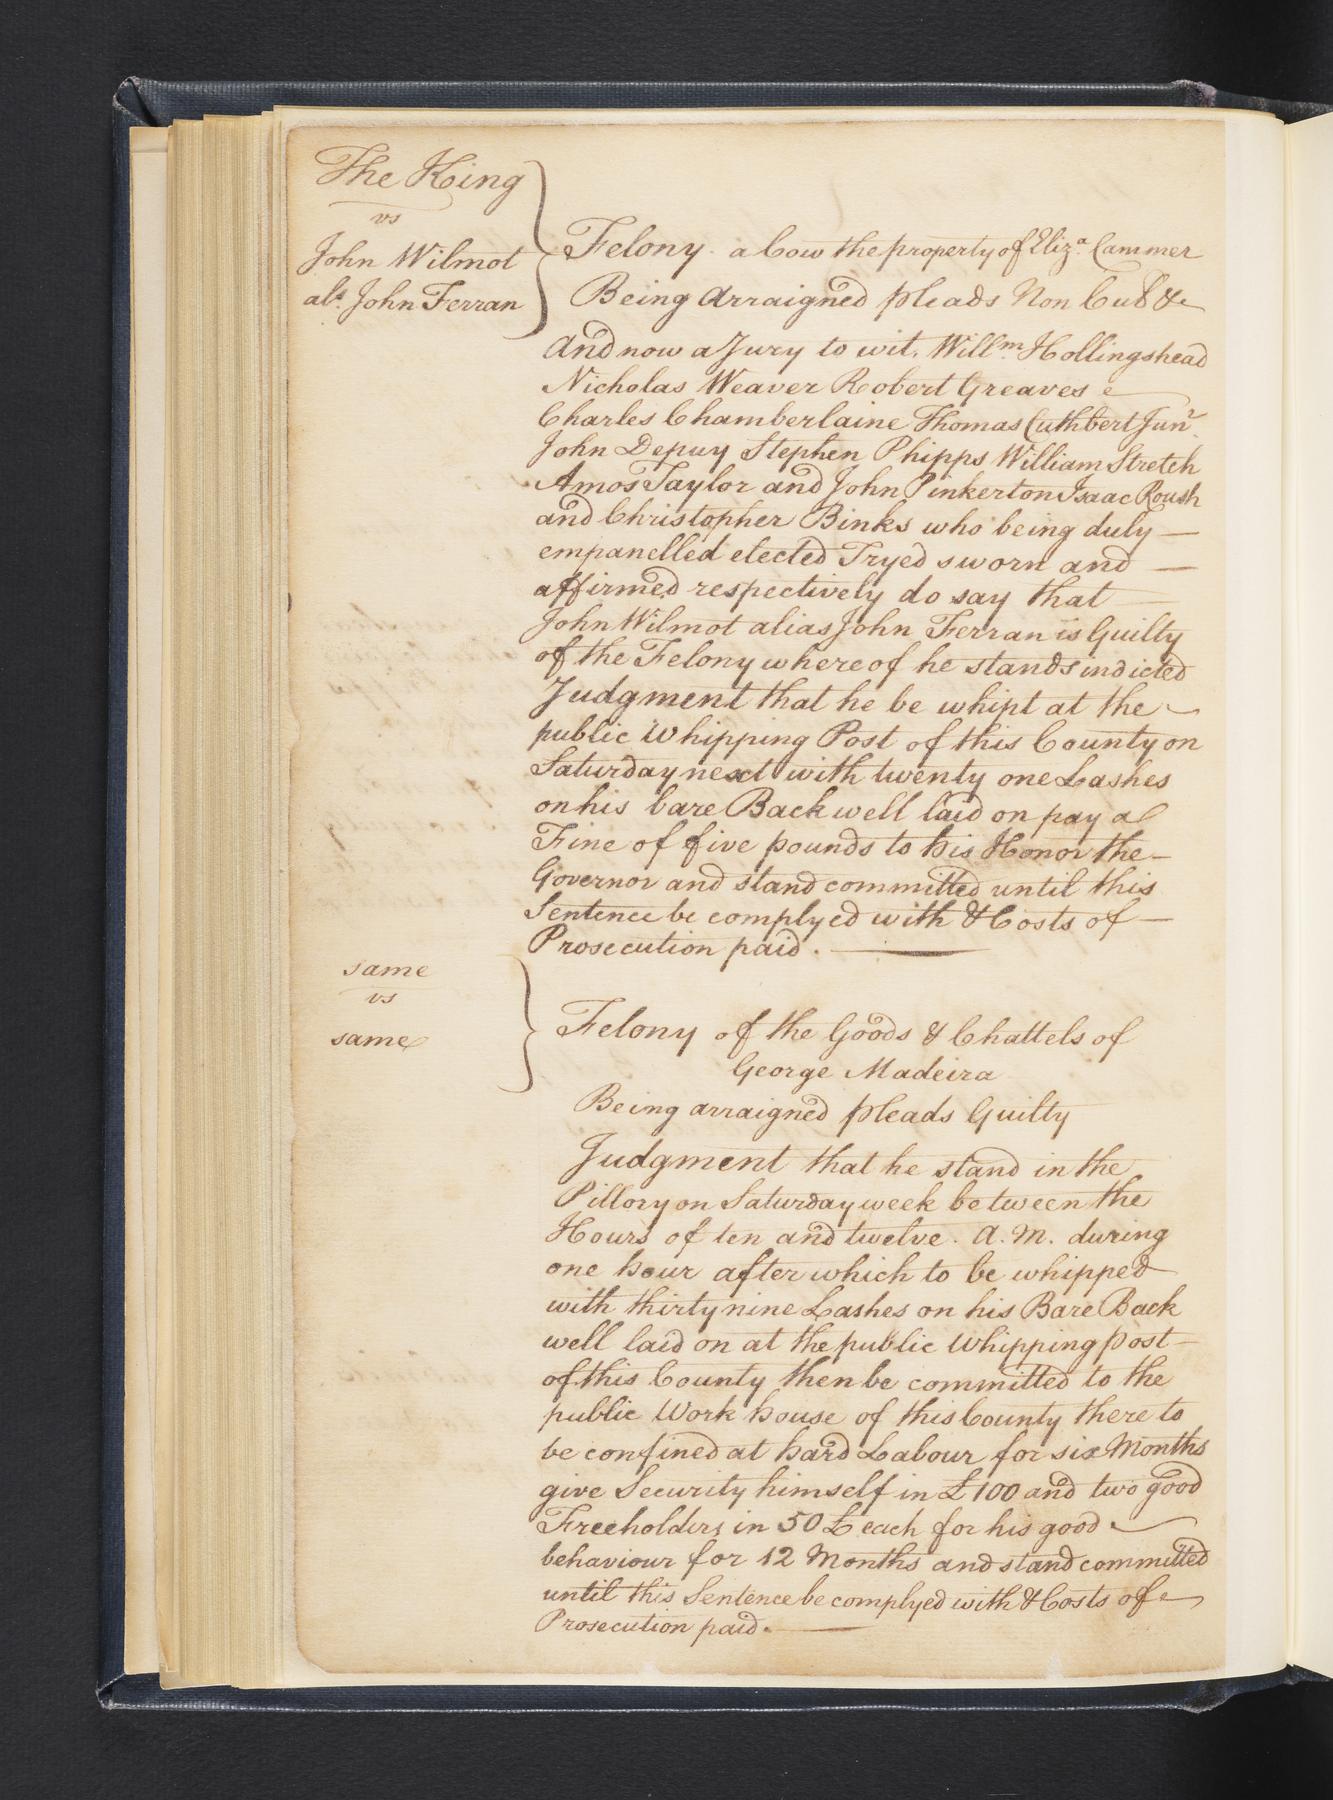 The King
vs
John Wilmot
als. John Ferran
Felony a Cow the property of Eliza. Cammer
Being Arraigned pleads Non Cul &c
And now a Jury to wit. Willm. Hollingshead
Nicholas Weaver Robert Greaves
Charles Chamberlaine Thomas Cuthbert Junr.
John Depuy Stephen Phipps William Stretch
Amos Taylor and John Pinkerton Isaac Roush
and Christopher Binks who being duly —
empanelled elected Tryed sworn and —
affirmed respectively do say that —
John Wilmot alias John Ferran is Guilty
of the Felony whereof he stands indicted
Judgment that he be whipt at the
public Whipping Post of this County on
Saturday next with twenty one Lashes
on his bare Back well laid on pay a
Fine of five pounds to his Honor the —
Governor and stand committed until this
Sentence be complyed with & Costs of —
Prosecution paid. —
same
vs
same
Felony of the Goods & Chattels of
George Madeira
Being arraigned pleads Guilty
Judgment that he stand in the
Pillory on Saturday week between the
Hours of ten and twelve. A. M. during
one hour after which to be whipped
with thirty nine Lashes on his Bare Back
well laid on at the public Whipping post —
of this County then be committed to the
public Work house of this County there to
be confined at hard Labour for six Months
give Security himself in £100 and two good
Freeholders in 50£ each for his good
behaviour for 12 Months and stand committed
until this Sentence be complyed with & Costs of
Prosecution paid. —